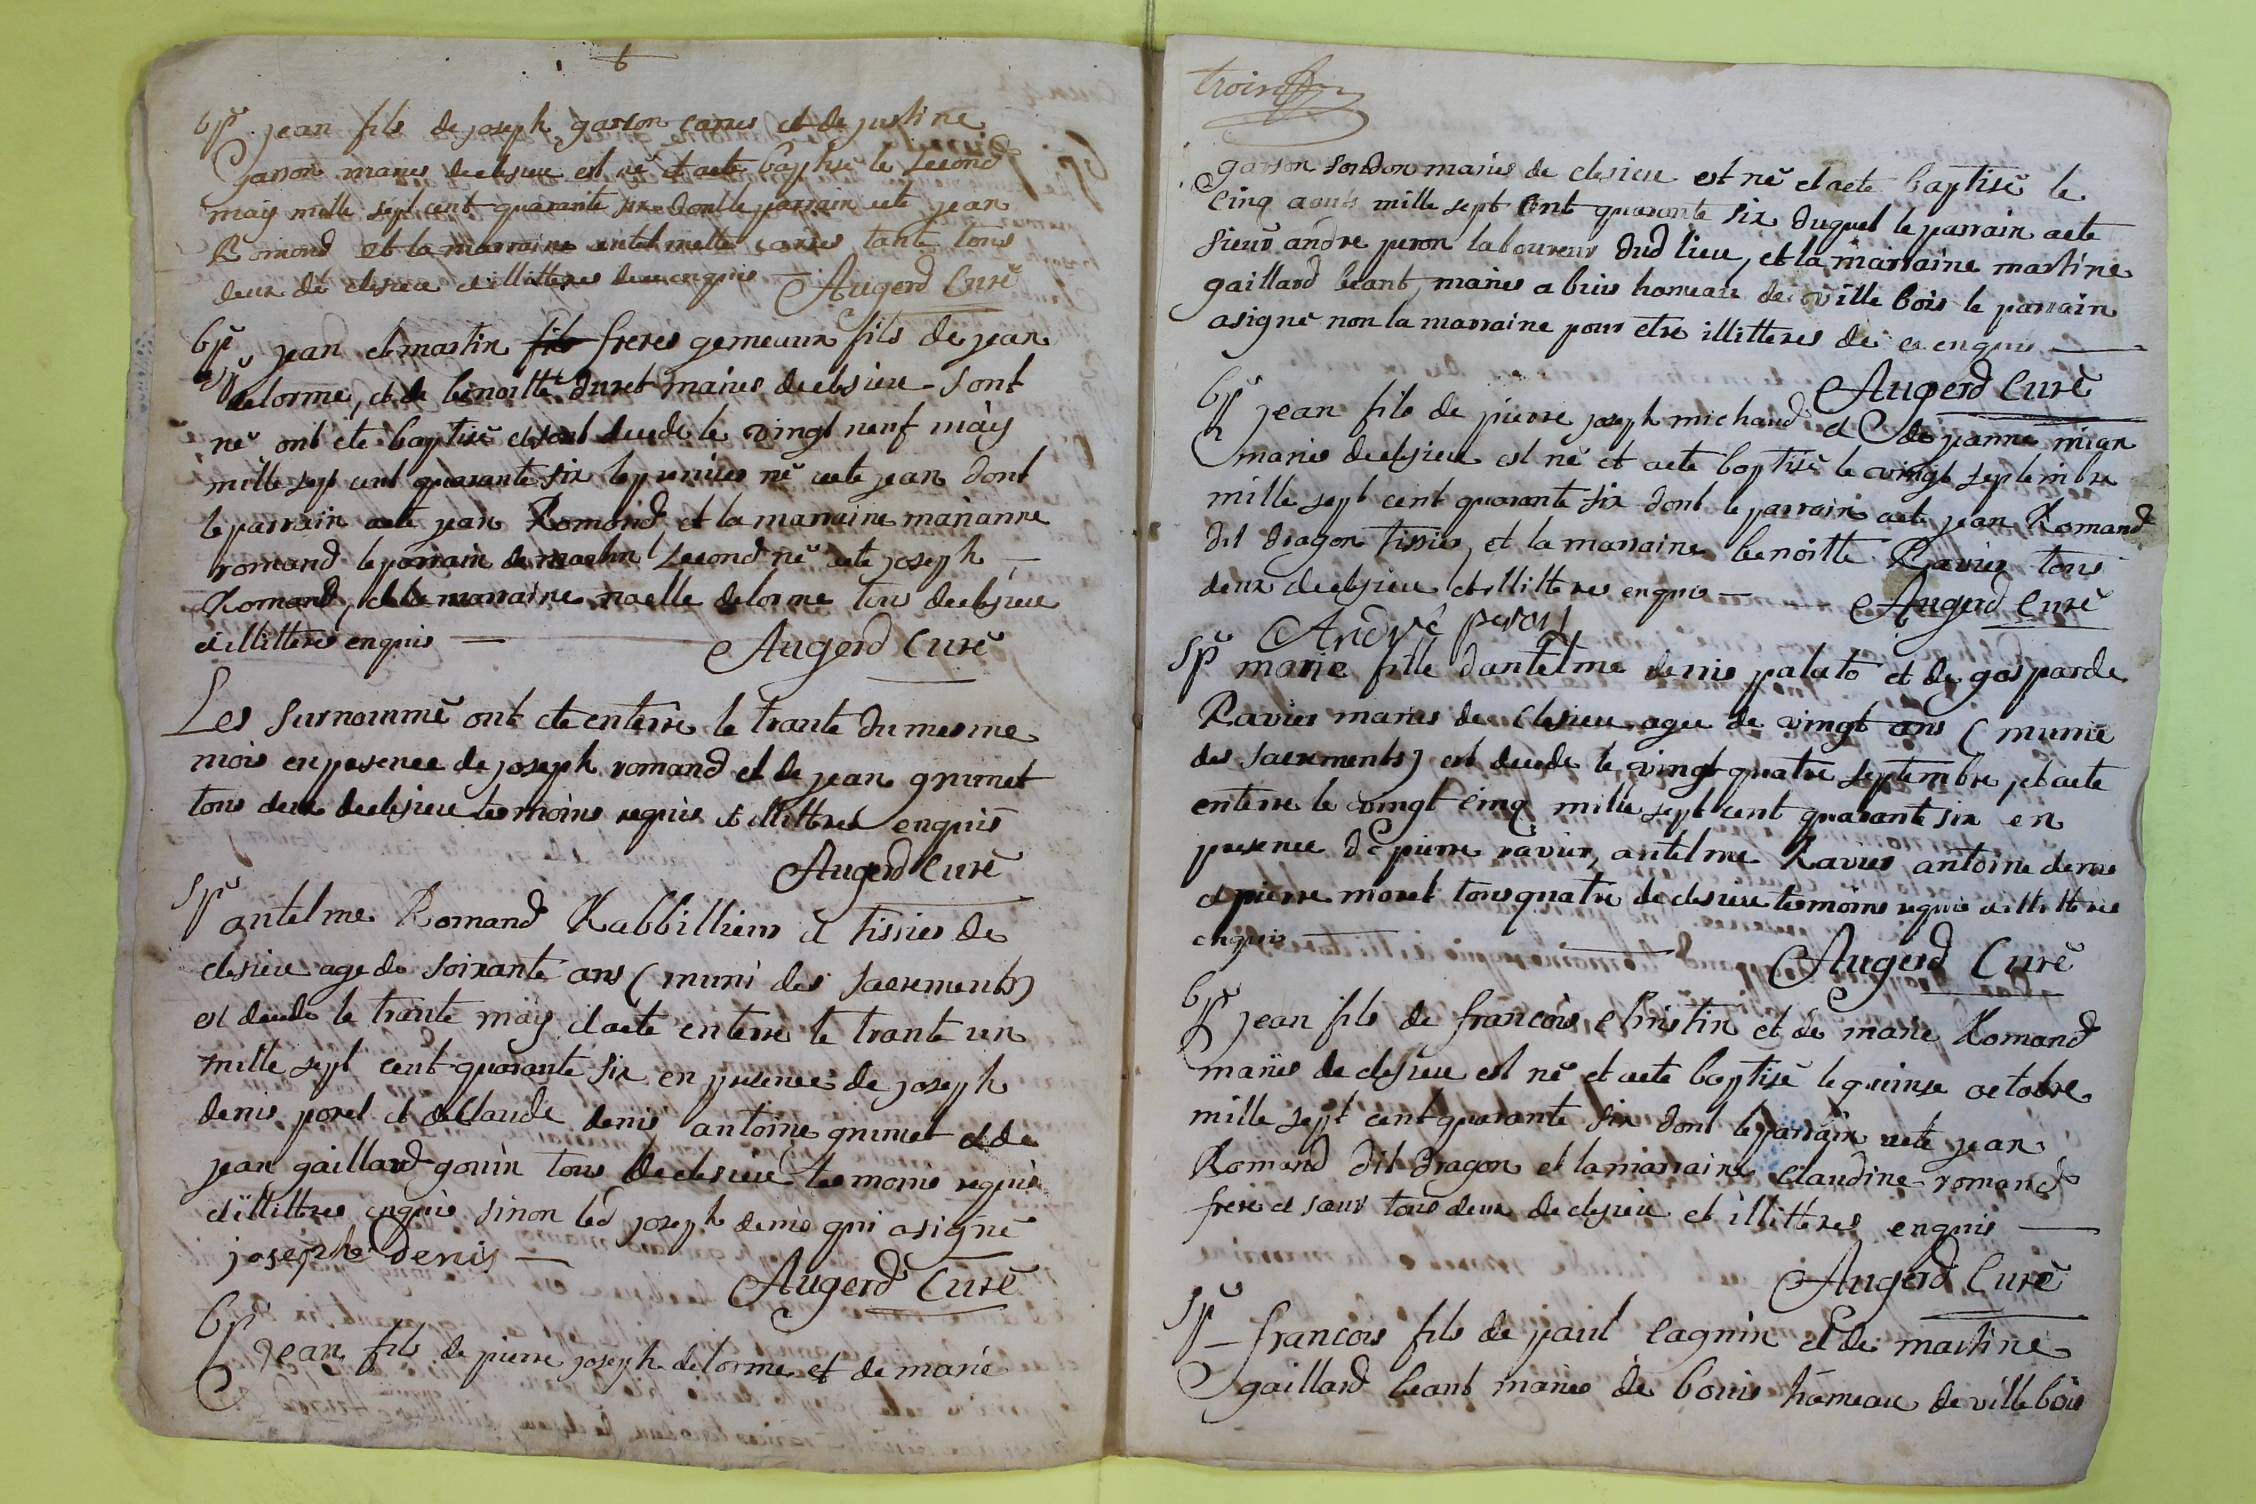 6
bp jean fils de joseph garson carrés et de justine
garson mariés declesieu est né et aeté baptisé le second
may mille sept cent quarante six dont le parrain aeté jean
Romond et la marraine antelmette carrés tante tous
deux de clesieu et illitteres deuenquis Augerd Curé
bp jean et martin fils freres gemeaux fils de jean
bp delorme, et de benoitte duret mariés declesieu sont
né ont eté baptisé et sont decedé le vingt neuf may
mille sept cent quarante six le premier né aeté jean dont
le parrain aeté jean Romond et la marraine marianne
romand le parrain de martin second né aeté joseph
Romand, et la marraine noelle delorme tous declesieu
et illitteres enquis Augerd Curé
Les surnommé ont eté enterré le trante du mesme
mois en presence de joseph romand et de jean grumet
tous deux declesieu tesmoins requis et illittres enquis
Augerd Curé
sp antelme Romand Rabbillieur et tissier de
clesieu age de soixante ans (muni des sacrements)
est decedé le trante may et aeté enterré le trante un
mille sept cent quarante six en presence de joseph
denis porel et de Claude denis antoine grumet et de
jean gaillard gouin tous de clesieu tesmoins requis
et illittres enquis sinon led joseph denis qui a signé
joseph denis
Augerd Curé
bp jean fils de pierre joseph delorme et de marie
trois
garson sondon mariés de clesieu est né et aeté baptisé le
cinq aoust mille sept cent quarante six duquel le parrain aeté
sieur andre peron laboureur dud lieu, et la marraine martine
gaillard beant, mariés a buis hameau de ville bois le parrain
a signé non la marraine pour etre illitteres de ce enquis
Augerd Curé
bp jean fils de pierre joseph michaud et de jeanne mian
mariés declesieu est né et aeté baptisé le vingt septembre
mille sept cent quarante six dont le parrain aeté jean Romand
dit dragon tissier, et la marraine benoitte Ravier tous
deux declesieu et illitteres enquis Augerd Curé
André peron
sp marie fille dantelme denis palato et de gasparde
Ravier mariés de clesieu agee de vingt ans (munie
des sacrements) est decedé le vingt quatre septembre, et aeté
enterré le vingt cinq mille sept cent quarante six en
presence de pierre ravier, antelme Ravier antoine denis
et pierre morel tous quatre de clesieu tesmoins requis et illitteres
enquis Augerd Curé
bp jean fils de francois Christin et de marie Romand
mariés de clesieu est né et aeté baptisé le quinse octobre
mille sept cent quarante six dont le parrain aeté jean
Romand dit dragon et la marraine Claudine romand
frere et sœur tous deux de clesieu et illitteres enquis
Augerd Curé
sp francois fils de paul cagnin et de martine
gaillard beant mariés de bouis hameau de villebois